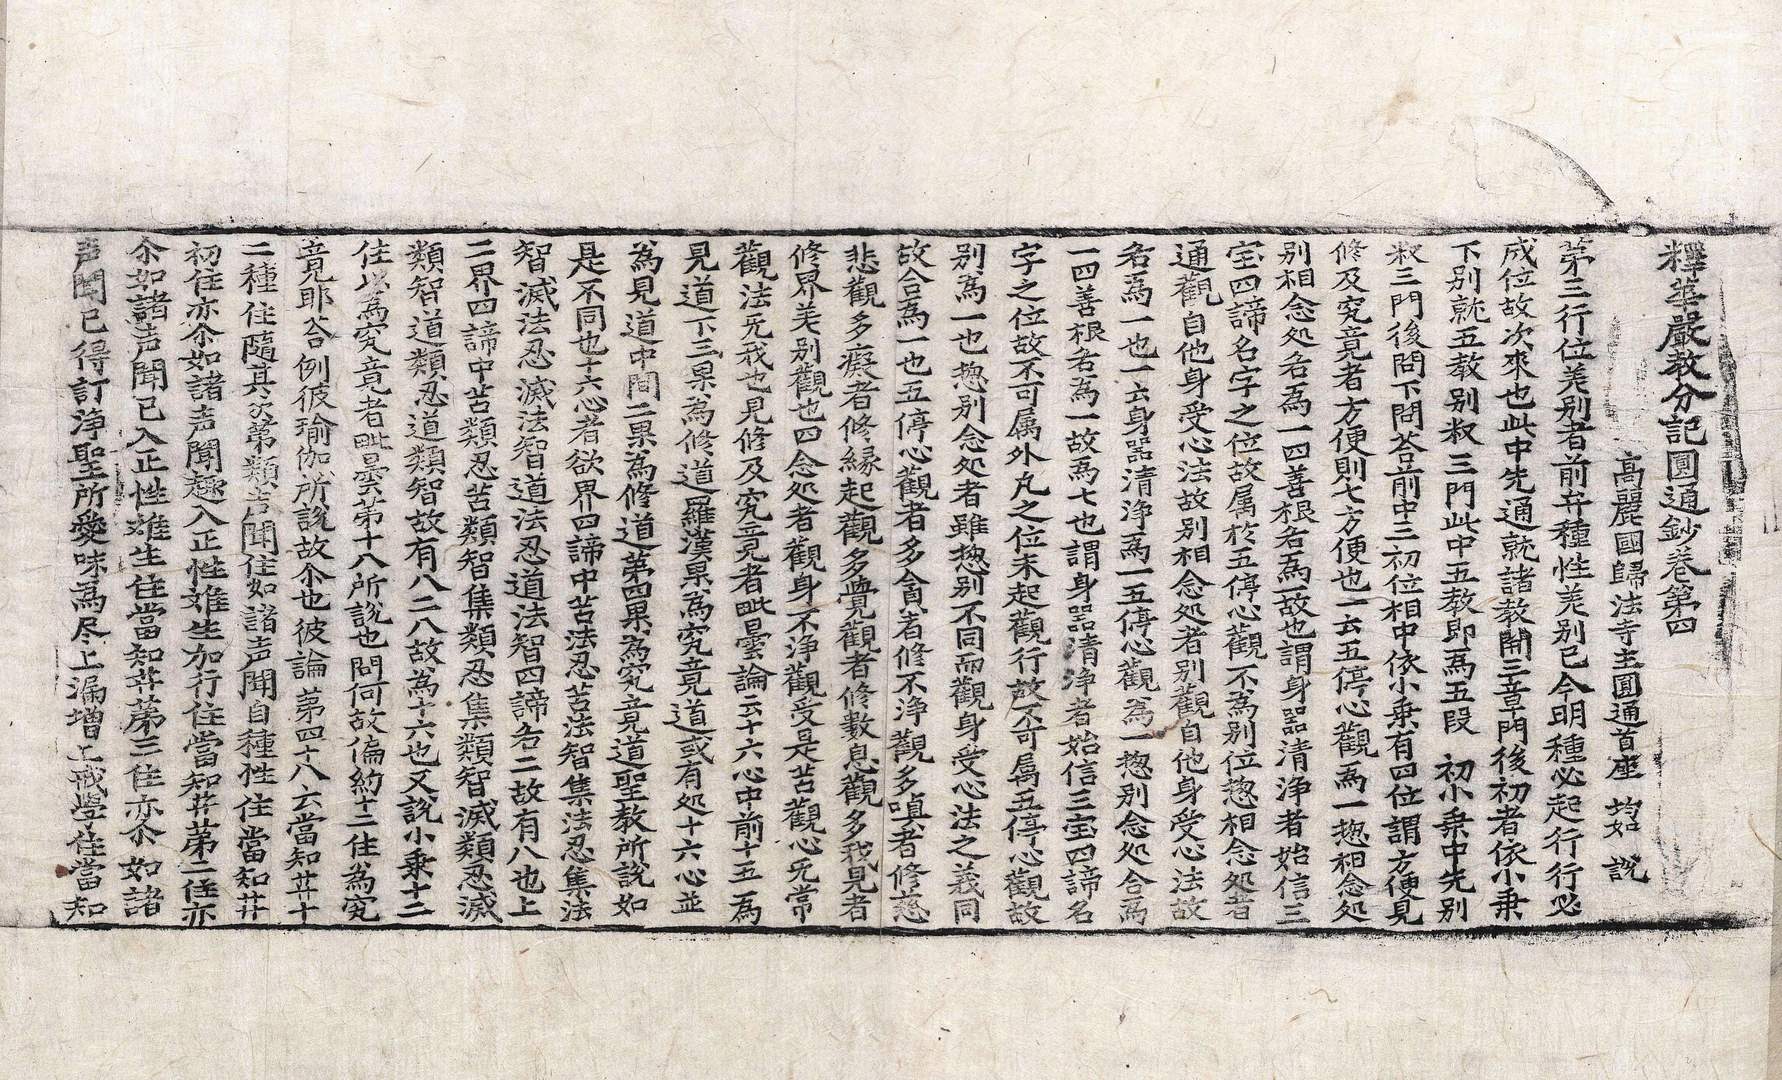 釋華嚴教分記圓通鈔卷第四
高麗國歸法寺主圓通首座 均如 說
第三行位差別者前弁種性差別已今明種必起行行必
成位故次來也此中先通就諸教開三章門後初者依小乘
下別就五教別釈三門此中五教即為五段 初小乘中先別
釈三門後問下問答前中三初位相中依小乘有四位謂方便見
修及究竟者方便則七方便也一云五停心觀為一惣相念処
別相念処名為一四善根名為一故也謂身器清淨者始信三
宝四諦名字之位故属於五停心觀不為別位惣相念処者
通觀自他身受心法故別相念処者別觀自他身受心法故
名為一也一云身器清淨為一五停心觀為一惣別念処合為
一四善根名為一故為七也謂身器清淨者始信三宝四諦名
字之位故不可属外九之位未起觀行故不可属五停心觀故
別為一也惣別念処者雖惣別不同而觀身受心法之義同
故合為一也五停心觀者多貪者修不淨觀多嗔者修慈
悲觀多癡者修縁起觀多覺觀者修數息觀多我見者
修界差別觀也四念処者觀身不淨觀受是苦觀心无常
觀法无我也見修及究竟者毗曇論云十六心中前十五為
見道下三果為修道羅漢果為究竟道或有処十六心並
為見道中間二果為修道第四果為究竟道聖教所說如
是不同也十六心者欲界四諦中苦法忍苦法智集法忍集法
智滅法忍滅法智道法忍道法智四諦各二故有八也上
二界四諦中苦類忍苦類智集類忍集類智滅類忍滅
類智道類忍道類智故有八二八故為十六也又說小乘十二
住此為究竟者毗曇第十八所說也問何故偏約十二住為究
竟耶荅例彼瑜伽所說故尒也彼論第四十八云當知菩薩十
二種住隨其次第類声聞住如諸声聞自種性住當知菩薩
初住亦尒如諸声聞趣入正性離生加行住當知菩薩第二住亦
尒如諸声聞已入正性離生住當知菩薩第三住亦尒如諸
声聞已得訂淨聖所愛味為尽上漏增上戒學住當知